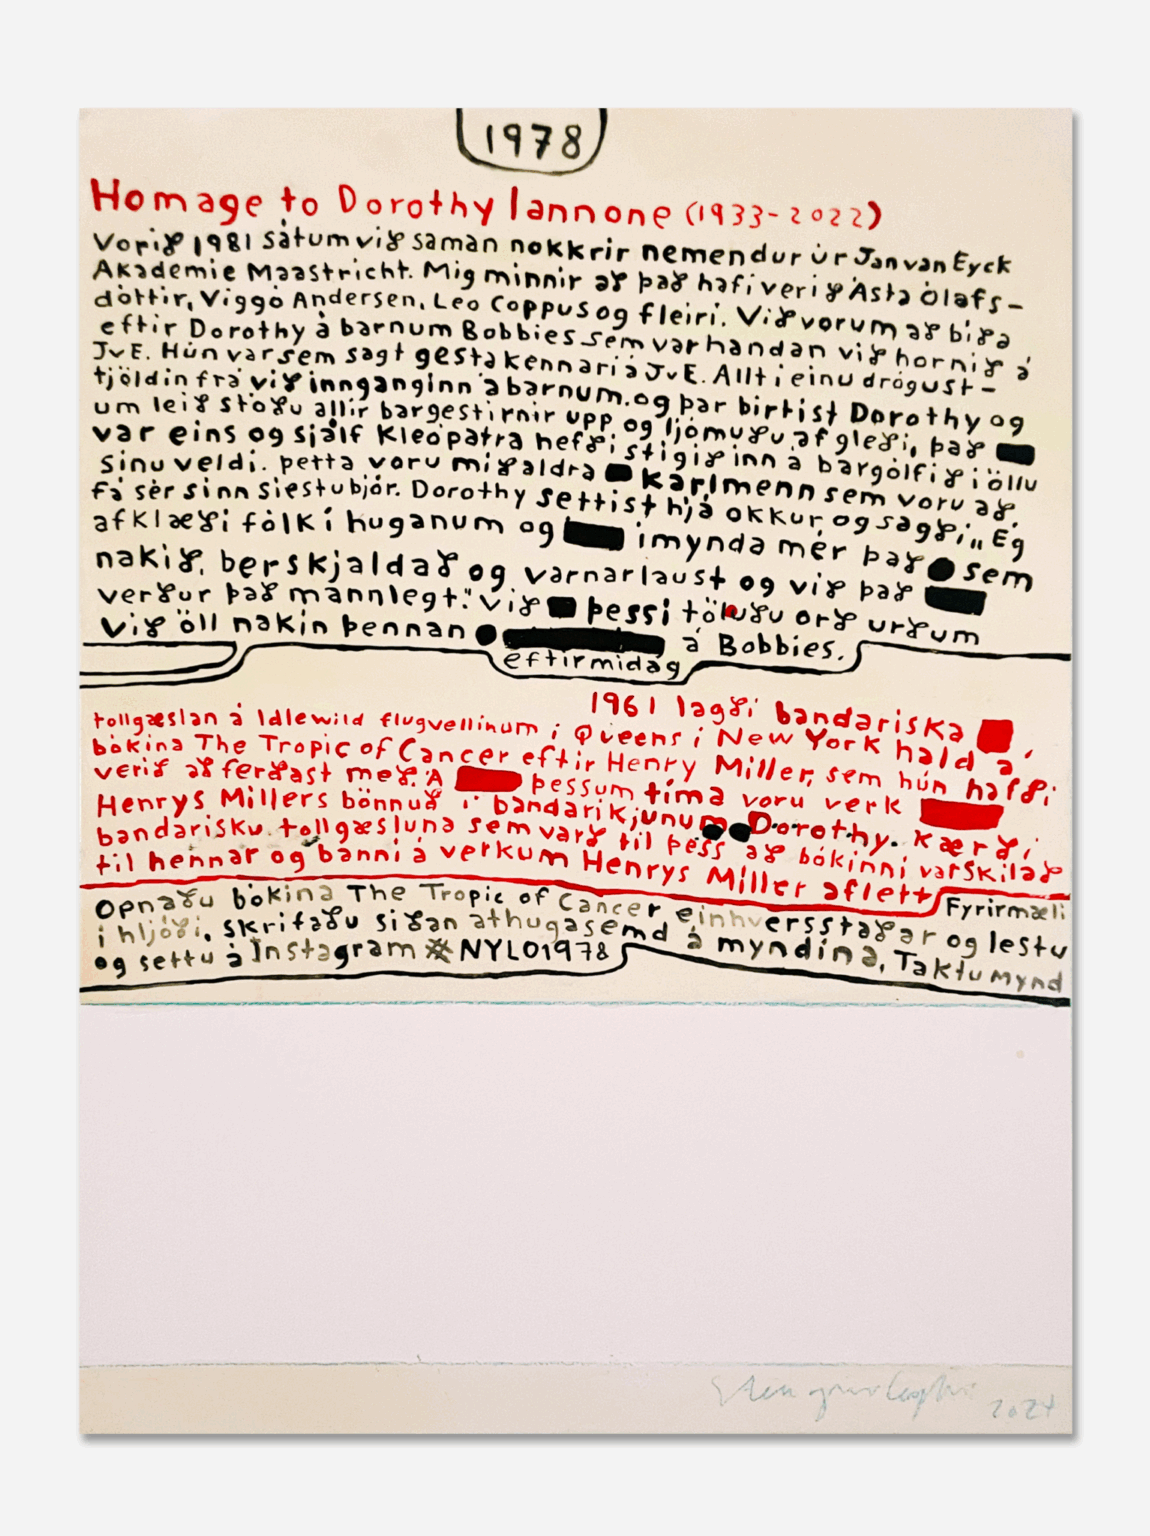 1978
Homage to Dorothy Iannone (1933-2022)
Vorið 1981 sátum við saman nokkrir nemendur úr Jan van Eyck
Akademie Maastricht. Mig minnir að það hafi verið Ásta Ólafs-
dóttir, Viggó Andersen, Leo Coppus og fleiri. Við vorum að bíða
eftir Dorothy á barnum Bobbies sem var handan við hornið á
JvE. Hún var sem sagt gestakennari á JvE. Allt í einu drógust-
tjöldin frá við innganginn á barnum og þar birtist Dorothy og
um leið stóðu allir bargestirnir upp og ljómuðu af gleði, það
var eins og sjálf Kleópatra hefði stigið inn á bargólfið í öllu
sínu veldi. Þetta voru miðaldra karlmenn sem voru að
fá sér sinn siestubjór. Dorothy settist hjá okkur og sagði, „Ég
afklæði fólk í huganum og ímynda mér það sem
nakið, berskjaldað og varnarlaust og við það
verður það mannlegt." Við þessi töluðu orð urðum
við öll nakin þennan á Bobbies.
eftirmiðdag
1961 lagði bandariska
tollgæslan á Idlewild flugvellinum í Queens í New York hald á,
bókina The Tropic of Cancer eftir Henry Miller, sem hún hafði
verið að ferðast með. Á þessum tíma voru verk
Henrys Millers bönnuð í bandaríkjunum Dorothy. kærði
bandarísku tollgæsluna sem varð til þess að bókinni var skilað
til hennar og banni á verkum Henrys Miller aflétt
Fyrirmæli
Opnaðu bókina The Tropic of Cancer einhversstaðar og lestu
í hljóði, skrifaðu síðan athugasemd á myndina, Taktu mynd
og settu á Instagram #NYLO1978
2024